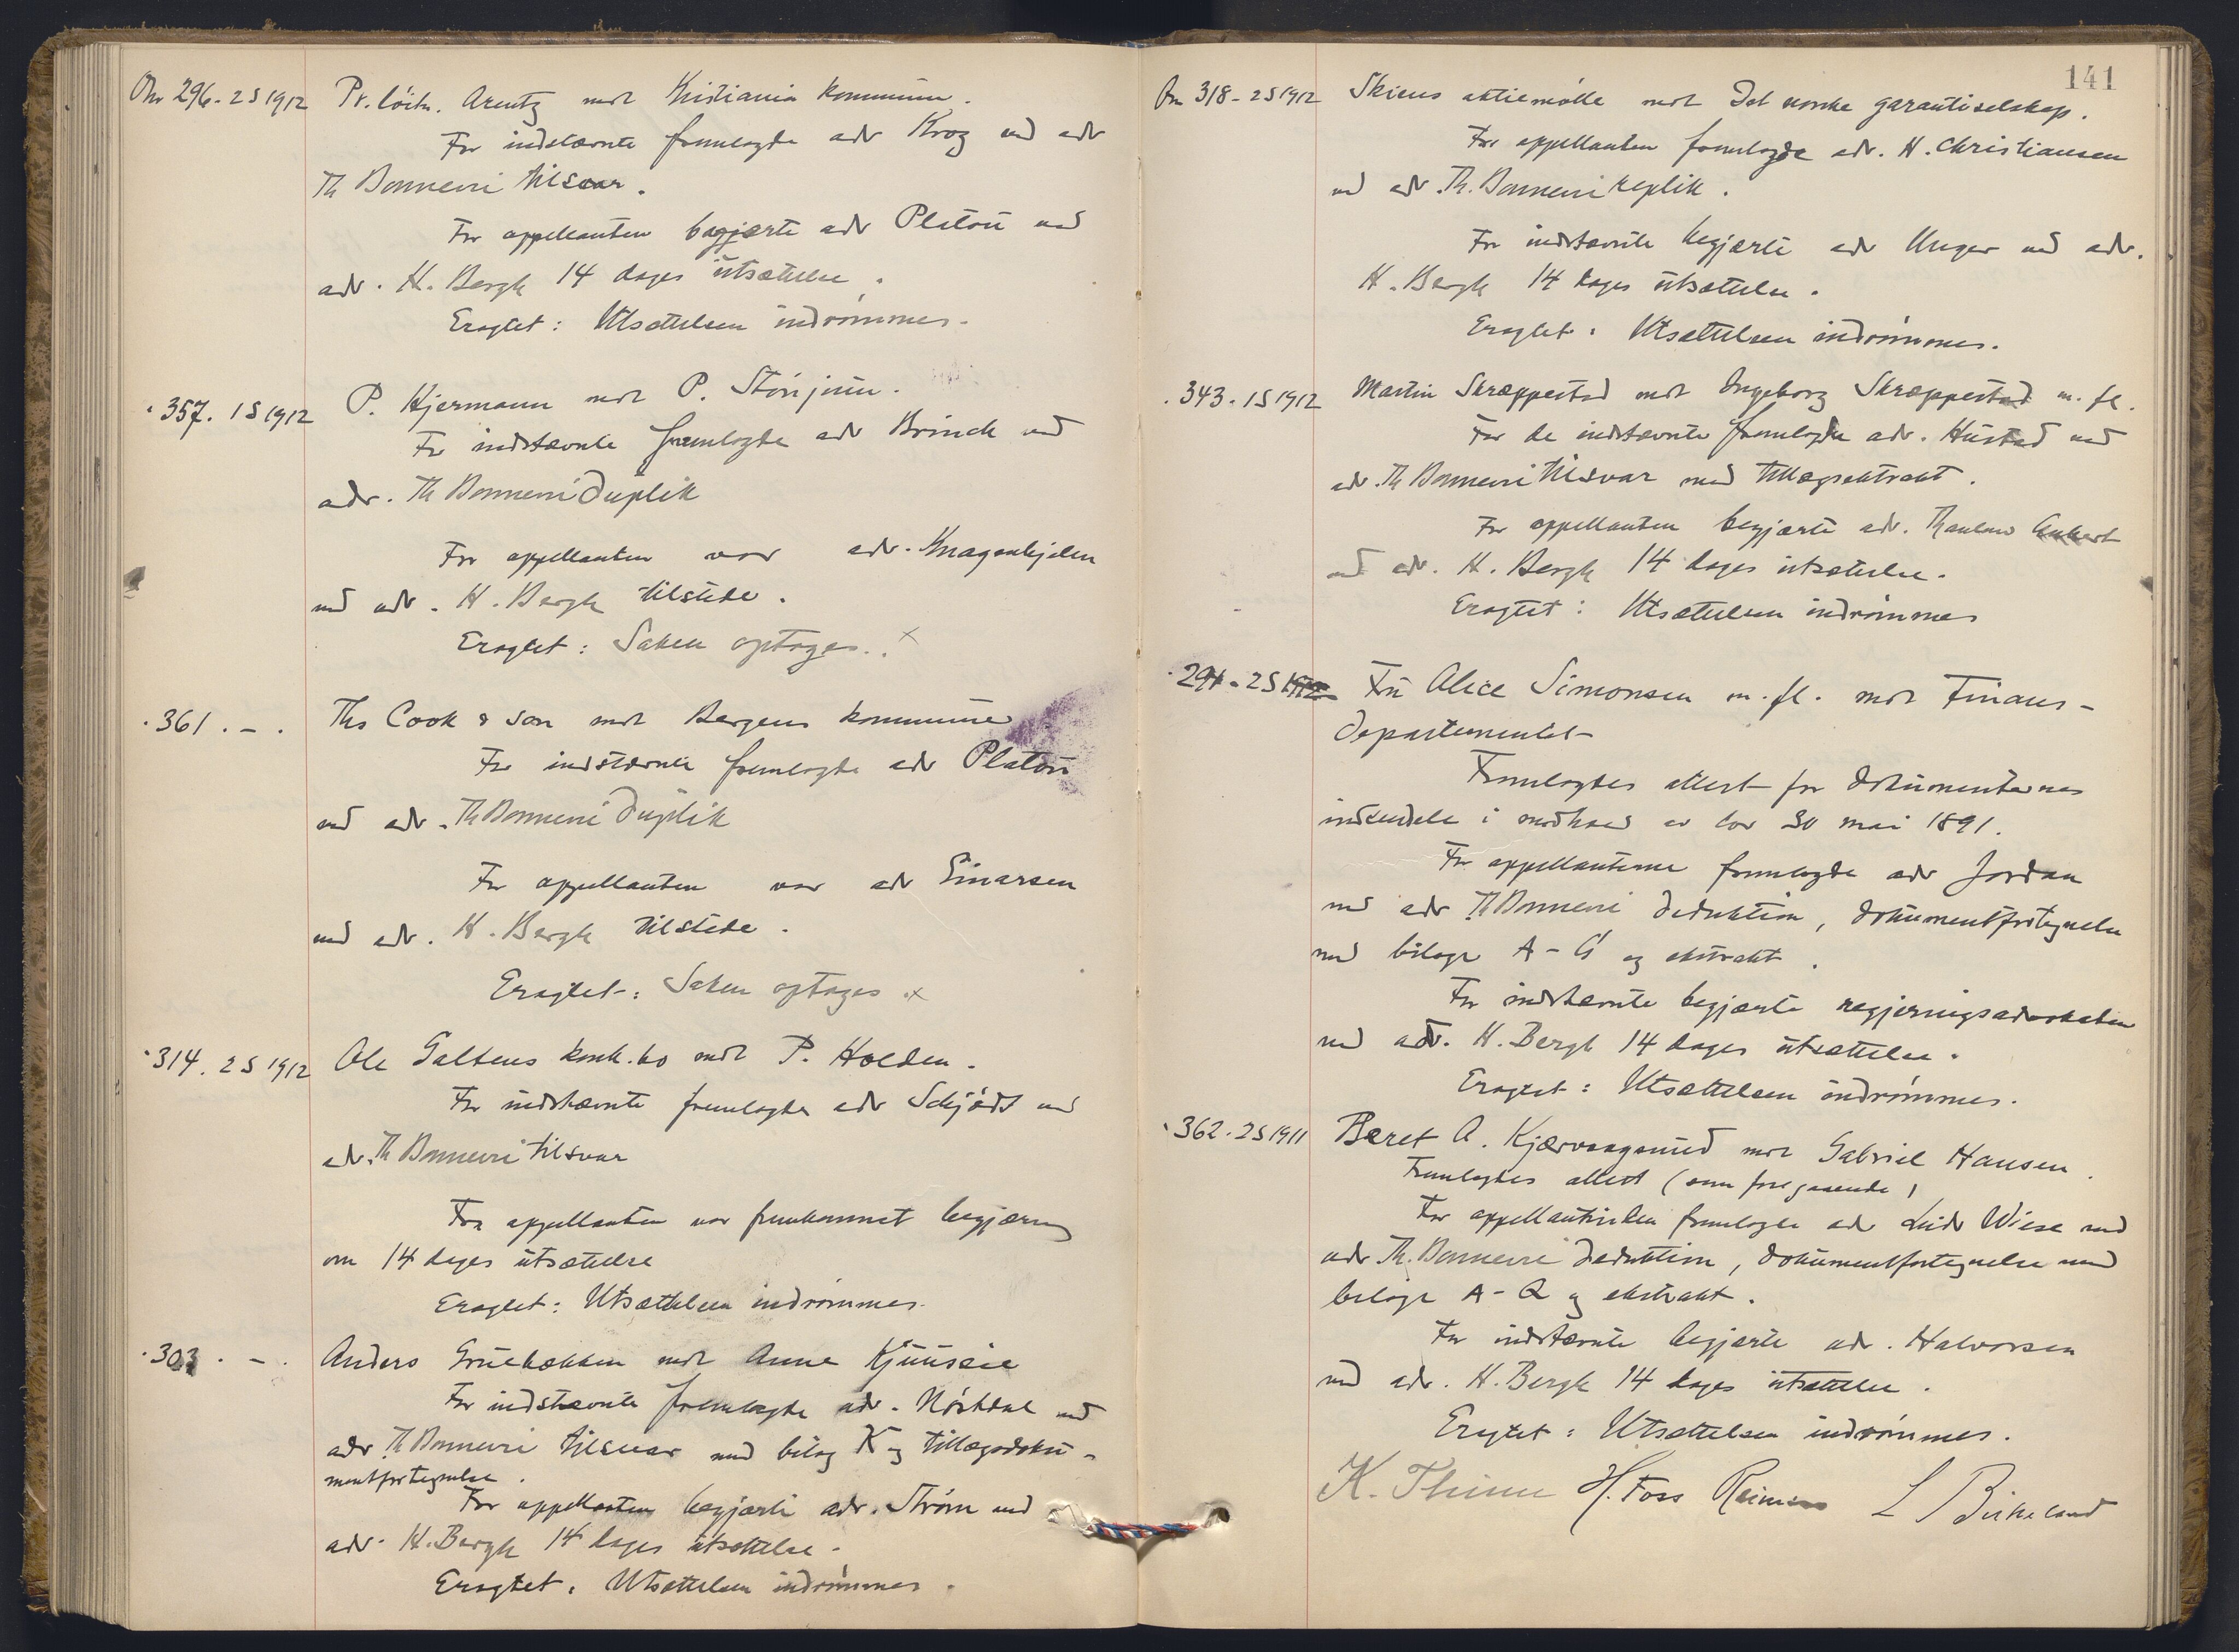 No 296. 2 S 1912 Pr. löitn. Arentz mot Kristiania kommune.
For indstævnte fremlagde adv Krog ved adv
Th Bonnevi tilsvar.
For appellanten begjærte adv Platou ved
adv. H. Bergh 14 dages utsættelse.
Eragtet: Utsættelsen indrømmes.
" 357. 1 S 1912 P. Hjermann mot P. Störijüm.
For indstævnte fremlagde adv Brinch ved
adv. Th Bonnevi duplik
For appellanten var adv. Knagenhjelm
ved adv. H. Bergh tilstede.
Eragtet: Saken optages. x
" 361. - . Ths Cook & Son mot Bergens kommune
For indstævnte fremlagde adv Platou
ved adv. Th Bonnevi duplik
For appellanten var adv Einarsen
ved adv. H. Bergh tilstede.
Eragtet: Saken optages x
" 314. 2 S 1912 Ole Galtens konk.bo mot P. Holden.
For indstævnte fremlagde adv Schjödt ved
adv. Th Bonnevi tilsvar
For appellanten var fremkommet begjæring
om 14 dages utsættelse
Eragtet: Utsættelsen indrømmes.
" 303. - . Anders Gruebækken mot Anne
For indstævnte fremlagde adv. Nørhdal ved
adv Th Bonnevi tilsvar med bilag K og tillægsdoku-
mentfortegnelse.
For appellanten begjærte adv. Strøm ved
adv. H. Bergh 14 dages utsættelse.
Eragtet: Utsættelsen indrømmes.
141
No 318 - 2 S 1912 Skiens aktiemølle mot Det norske garantiselskap.
For appellanten fremlagde adv. H. Christiansen
ved adv. Th. Bonnevi replik.
For indstævnte begjærte adv Unger ved adv.
H. Bergh 14 dages utsættelse.
Eragtet: Utsættelsen indrømmes.
" 343. 1 S 1912 Martin Skræppestad mot Ingeborg Skræppestad m. fl.
For de indstævnte fremlagde adv. Hustad ved
adv. Th Bonnevi tilsvar med tillægsektrakt.
For appellanten begjærte adv. Thaulow Aubert
ved adv. H. Bergh 14 dages utsættelse.
Eragtet: Utsættelsen indrømmes
" 291. 2 S 1912 Fru Alice Simonsen m. fl. mot Finans-
departementet
Fremlagdes attest for dokumenternes
indsendelse i medhold av lov 30 mai 1891.
For appellanterne fremlagde adv Jordan
ved adv Th Bonnevi deduktion, dokumentfortegnelse
med bilage A - G og ekstrakt.
For indstævnte begjærte regjeringsadvokaten
ved adv. H. Bergh 14 dages utsættelse.
Eragtet: Utsættelsen indrømmes.
" 362. 2 S 1911 Beret A. Kjærvaagsund mot Gabriel Hansen.
Fremlagdes attest (som foregaaende)
For appellantinden fremlagde adv Wiese ved
adv Th. Bonnevi deduktion, dokumentfortegnelse med
bilage A - Q og ekstrakt.
For indstævnte begjærte adv. Halvorsen
ved adv. H. Bergh 14 dages utsættelse.
Eragtet: Utsættelsen indrømmes.
K. Thinn H. Foss Reimers L Birkeland